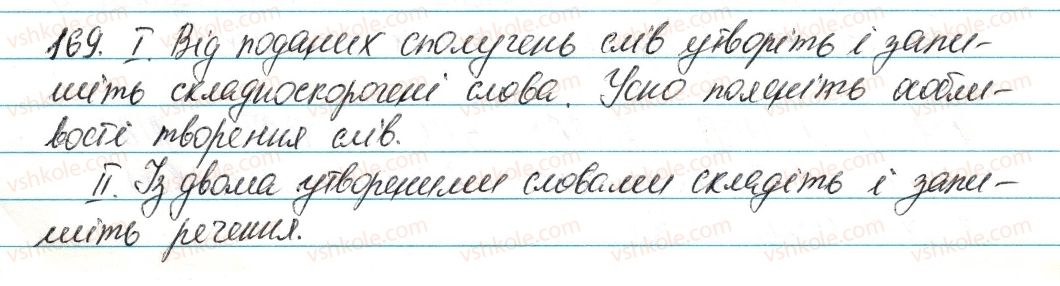 169. I. Від поданих сполучень слів утворіть і запи-
шіть складноскорочені слова. Усно поясніть особли-
вості творення слів.
II. Із двома утвореними словами складіть і запи-
шіть речення.